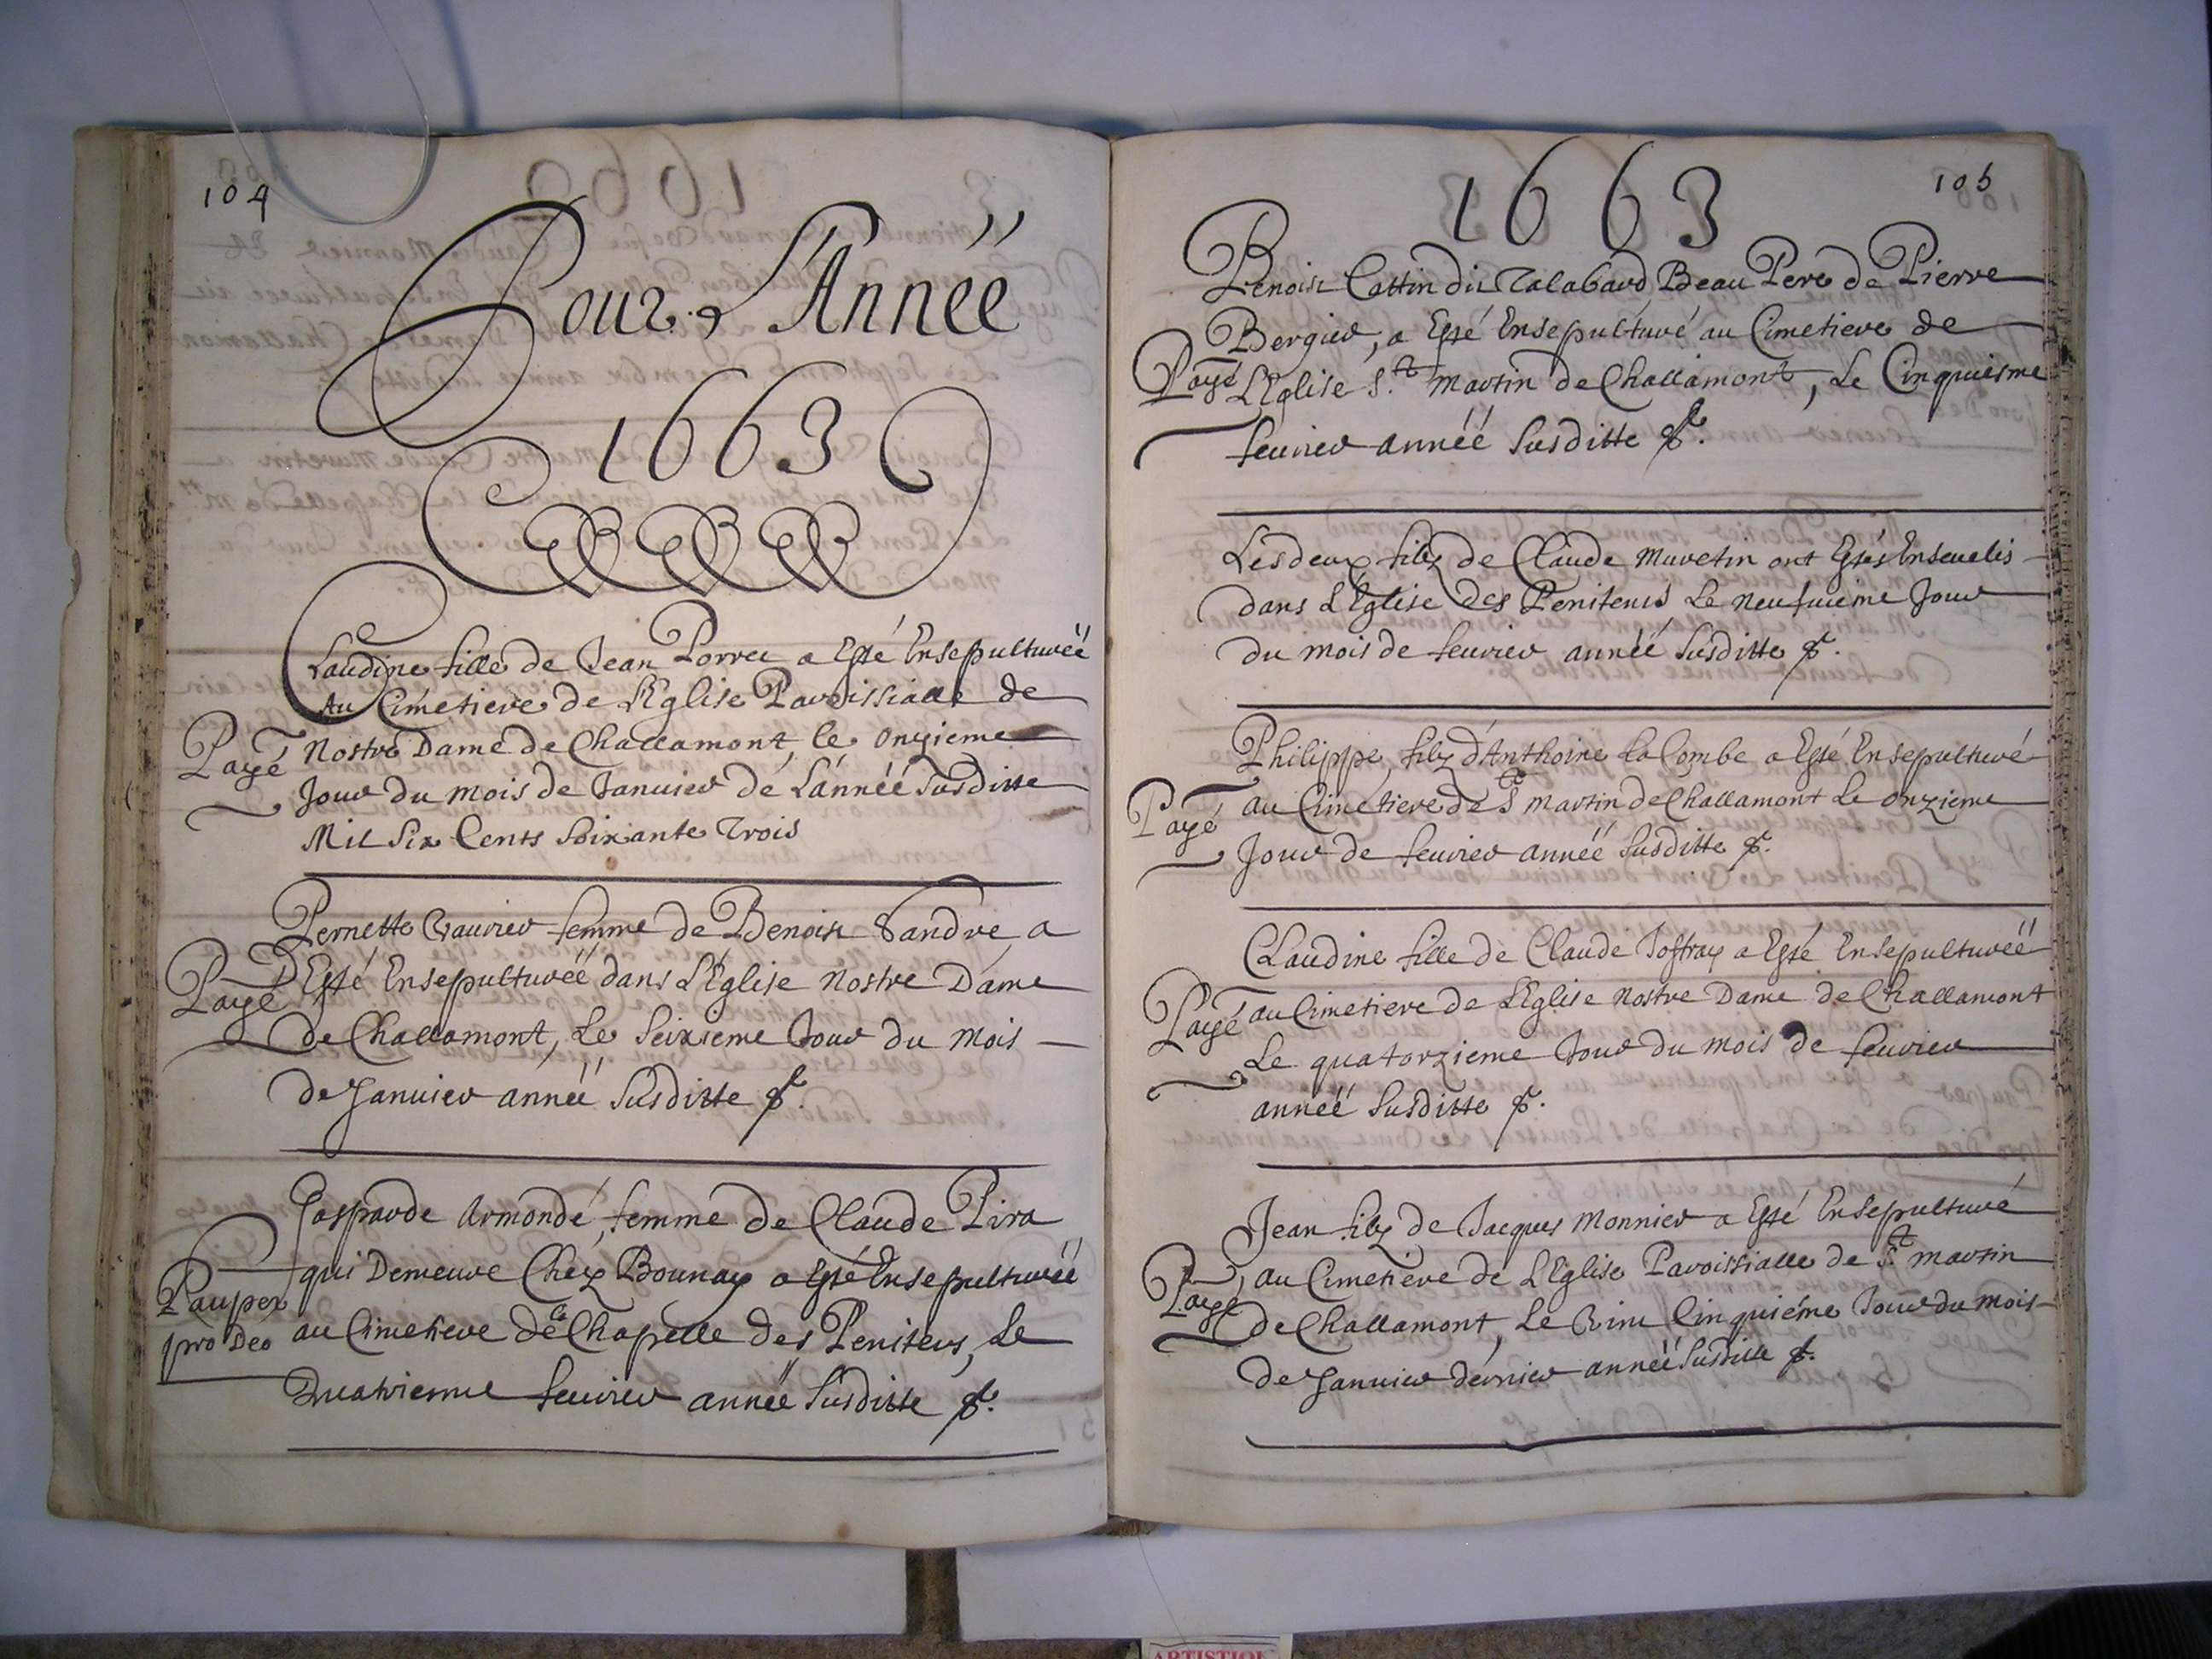 104
Pour L'Année
1663
Claudine fille de Jean Porret a Esté Ensepulturéé
Au Cimétiere de L'Eglise Paroissialle de
Payé Nostre Dame de Challamont, le onzieme
Jour du mois de Januier de L'annéé Susditte
Mil Six Cents Soixante Trois
Pernette Vaurier femme de Benoist Vandre, a
Payé Esté Ensepulturéé dans L'Eglise Nostre Dame
de Challamont, Le Seixieme Jour du Mois
de Januier annéé Susditte
Gasparde Armondé, femme de Claude Pira
qui Demeure Chez Bounay a Esté Ensepulturéé
Pauper au Cimetiere de la Chapelle des Penitens, Le
pro Deo
Quatriesme feurier annéé Susditte
1663
105
Benoist Cottin dit Talabard Beau Pere de Pierre
Bergier, a Esté Ensepulturé au Cimetiere de
Payé L'Eglise St. Martin de Challamont, Le Cinquiesme
feurier annéé Susditte
Les deux filz de Claude Muretin ont Estés Enseuelis
dans L'Eglise des Penitents Le neufuieme Jour
du mois de feurier annéé Susditte
Philippe, filz d'Anthoine La Combe a Esté Ensepulturé
Payé au Cimetiere de St martin de Challamont Le onzieme
Jour de feurier annéé Susditte
Claudine fille de Claude Joffray a Esté Ensepulturéé
Payé au Cimetiere de L'Eglise Nostre Dame de Challamont
Le quatorzieme Jour du mois de feurier
annéé Susditte
Jean filz de Jacques Monnier a Esté Ensepulturé
Payé au Cimetiere de L'Eglise Paroissialle de St martin
de Challamont, Le Vint Cinquiéme Jour du mois
de Januier dernier annéé Susditte